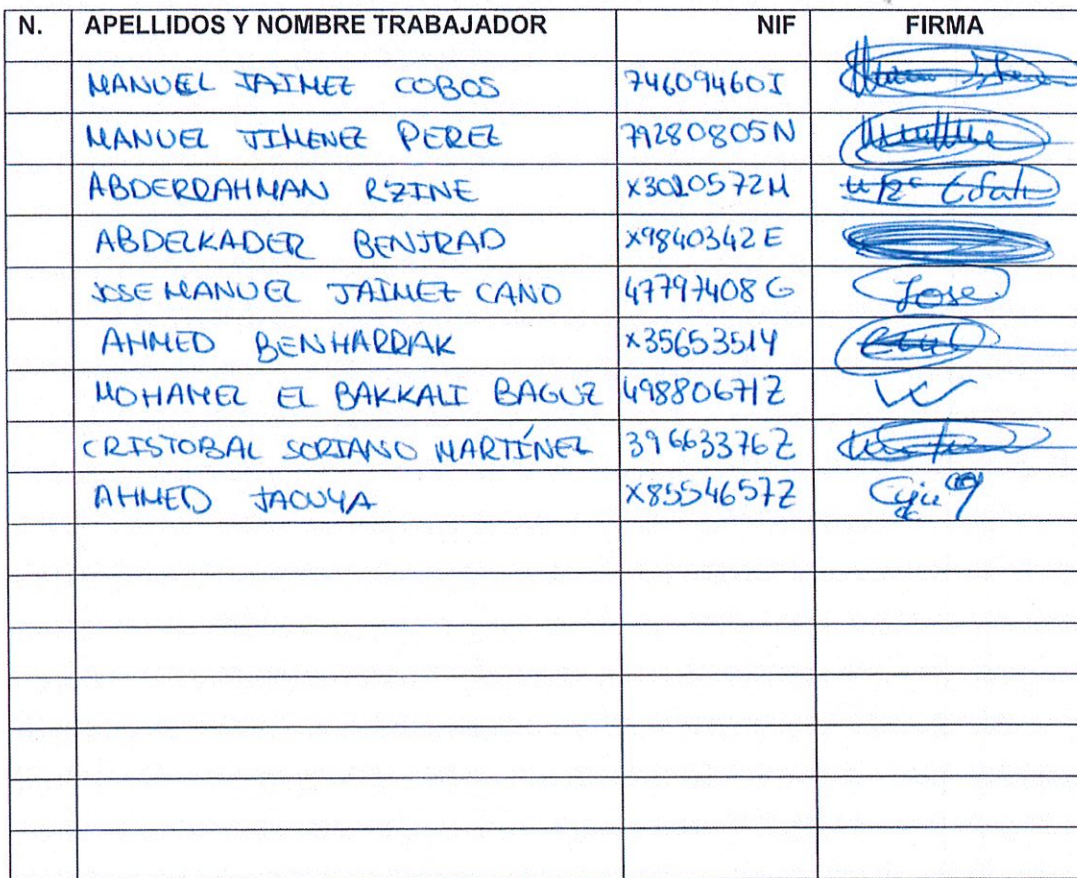 N. APELLIDOS Y NOMBRE TRABAJADOR NIF FIRMA
MANUEL JAIMEZ COBOS 74609460J
MANUEL JIMENEZ PEREZ 79280805N
ABDERRAHMAN RZINE X3020572M
ABDELKADER BENJRAD X9840342E
JOSE MANUEL JAIMEZ CANO 47797408G Jose
AHMED BENHARRAK X3565351Y
MOHAMED EL BAKKALI BAGUZ 49880671Z
CRISTOBAL SORIANO MARTÍNEZ 39663376Z
AHMED JAOUYA X8554657Z